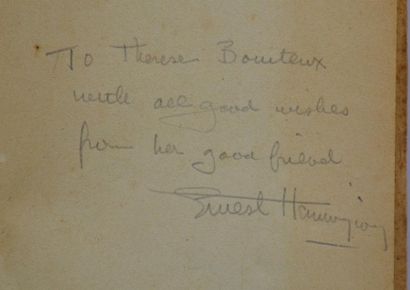 To Therese Bouteux
with all good wishes
from her good friend
Ernest Hemingway